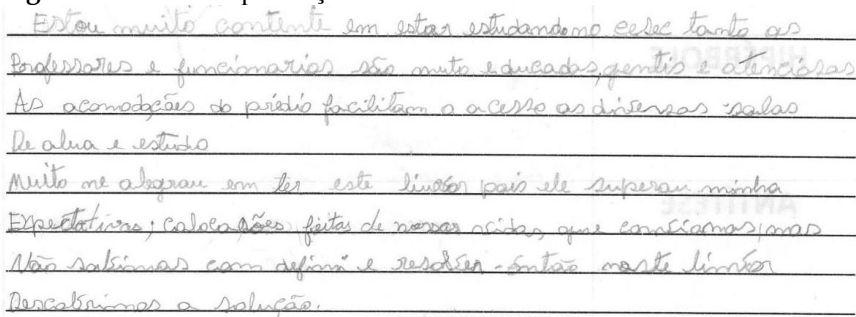 Estou muito contente em estar estudando no cesec tanto as
Professores e funcionarios são muto educadas, gentis e atenciósas
As acomodações do prédio facilitam o acesso as diversas salas
De alua e estudo
Muito me alegrau em ler este pois ele superou minha
Expectativas; colocações feitas de nossas vidas, que conviamos, mas
Não sabimos com definir e resolver - então neste
Descobrimos a solução.
HIPÉRBOLE
ANTÍTESE